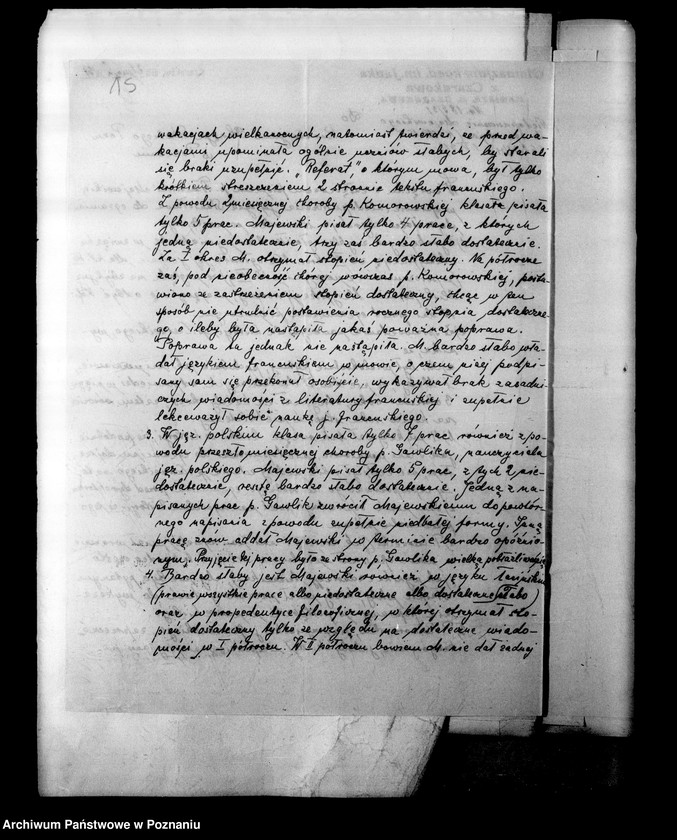 15
wakacjach wielkanocnych, natomiast twierdzi, ze przed wa-
kacjami upominała ogólnie uczniów słabych, by starali
się braki uzupełnić. "Referat," o którym mowa, był tylko
krótkiem streszczeniem 2 stronic tekstu francuskiego.
Z powodu 2miesięcznej choroby p. Komorowskiej klasa pisała
tylko 5 prac. Majewski pisał tylko 4 prace, z których
jedną niedostatecznie, trzy zaś bardzo słabo dostatecznie.
Za I okres M. otrzymał stopień niedostateczny. Na półrocze
zaś, pod nieobecność chorej wówczas p. Komorowskiej, posta-
wiono ze zastrzeżeniem stopień dostateczny, chcąc w ten
sposób nie utrudnić postawienia rocznego stopnia dostateczne-
go, o ileby była nastąpiła jakaś poważna poprawa.
Poprawa ta jednak nie nastąpiła. M. bardzo słabo wła-
dał językiem francuskiem w mowie, o czem niżej podpi-
sany sam się przekonał osobiście, wykazywał brak zasadni-
czych wiadomości z literatury francuskiej i zupełnie
lekceważył sobie naukę j. francuskiego.
3. W jęz. polskim klasa pisała tylko 7 prac również z po-
wodu przeszło miesięcznej choroby p. Gawlika, nauczyciela
jęz. polskiego. Majewski pisał tylko 5 prac, z tych 2 nie-
dostatecznie, resztę bardzo słabo dostatecznie. Jedną z na-
pisanych prac p. Gawlik zwrócił Majewskiemu do powtór-
nego napisania z powodu zupełnie niedbałej formy. Inną
pracę znów oddał Majewski w terminie bardzo opóźnio-
nym. Przyjęcie tej pracy było ze strony p. Gawlika wielką
4. Bardzo słaby jest Majewski również w języku łacińskim
(prawie wszystkie prace albo niedostateczne albo dostateczne słabo)
oraz w propedeutyce filozoficznej, w której otrzymał sto-
pień dostateczny tylko ze względu na dostateczne wiado-
mości w I półroczu. W II półroczu bowiem M. nie dał żadnej
Archiwum Państwowe w Poznaniu